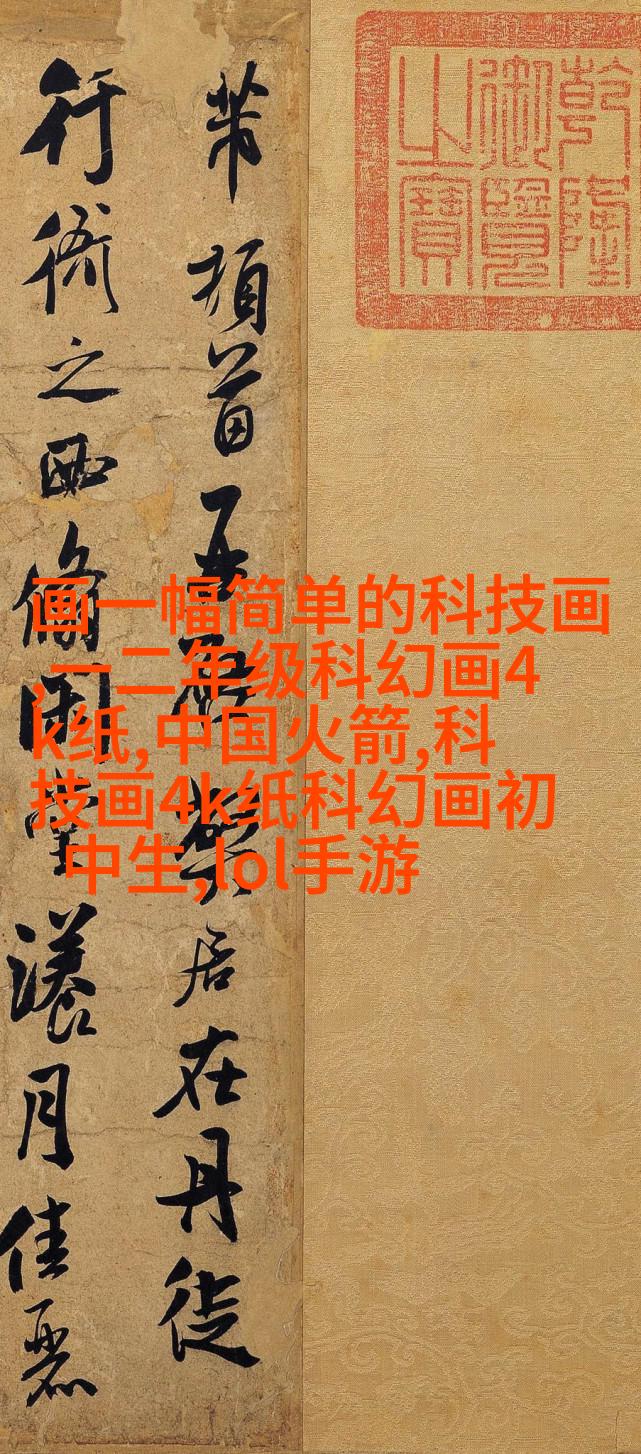 乾隆
御覽
之寶
芾頓首再啟弊居在丹徒
行衙之西翛閑堂漾月佳麗
画一幅简单的科技画
,一二年级科幻画4
k纸,中国火箭,科
技画4k纸科幻画初
中生,lol手游